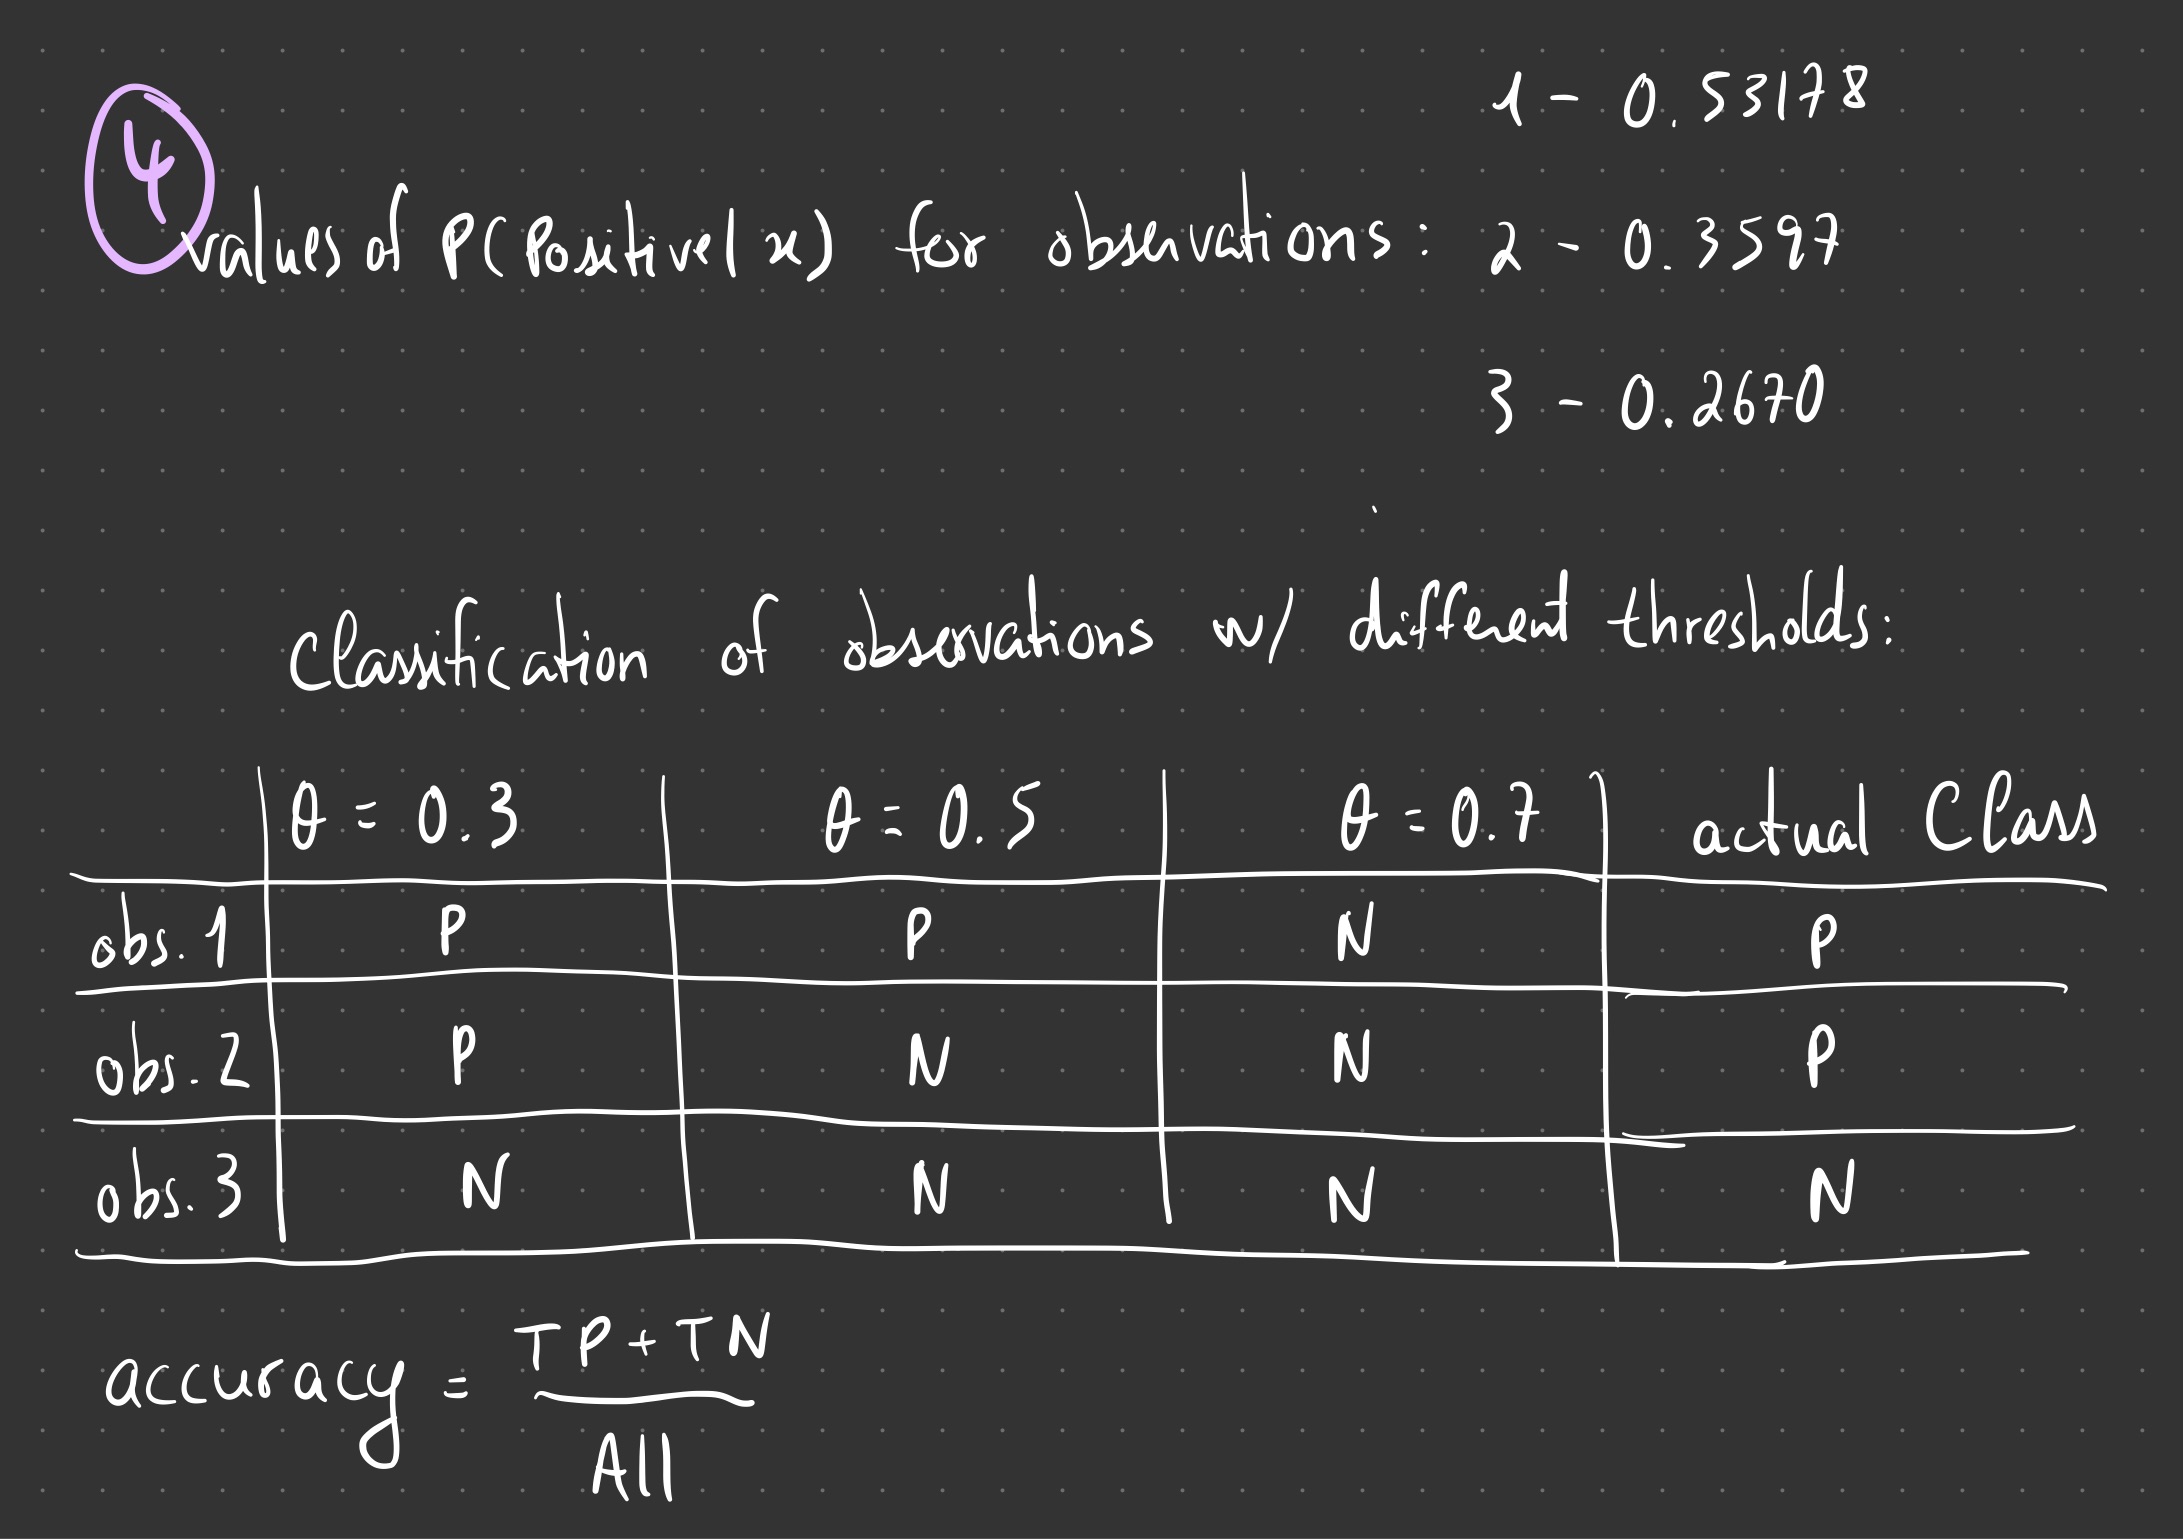 4
1 - 0.53178
values of P(Positive|x) for observations: 2 - 0.3597
3 - 0.2670
Classification of observations w/ different thresholds:
θ = 0.3 θ = 0.5 θ = 0.7 actual Class
obs. 1 P P N P
obs. 2 P N N P
obs. 3 N N N N
accuracy = TP + TN
All